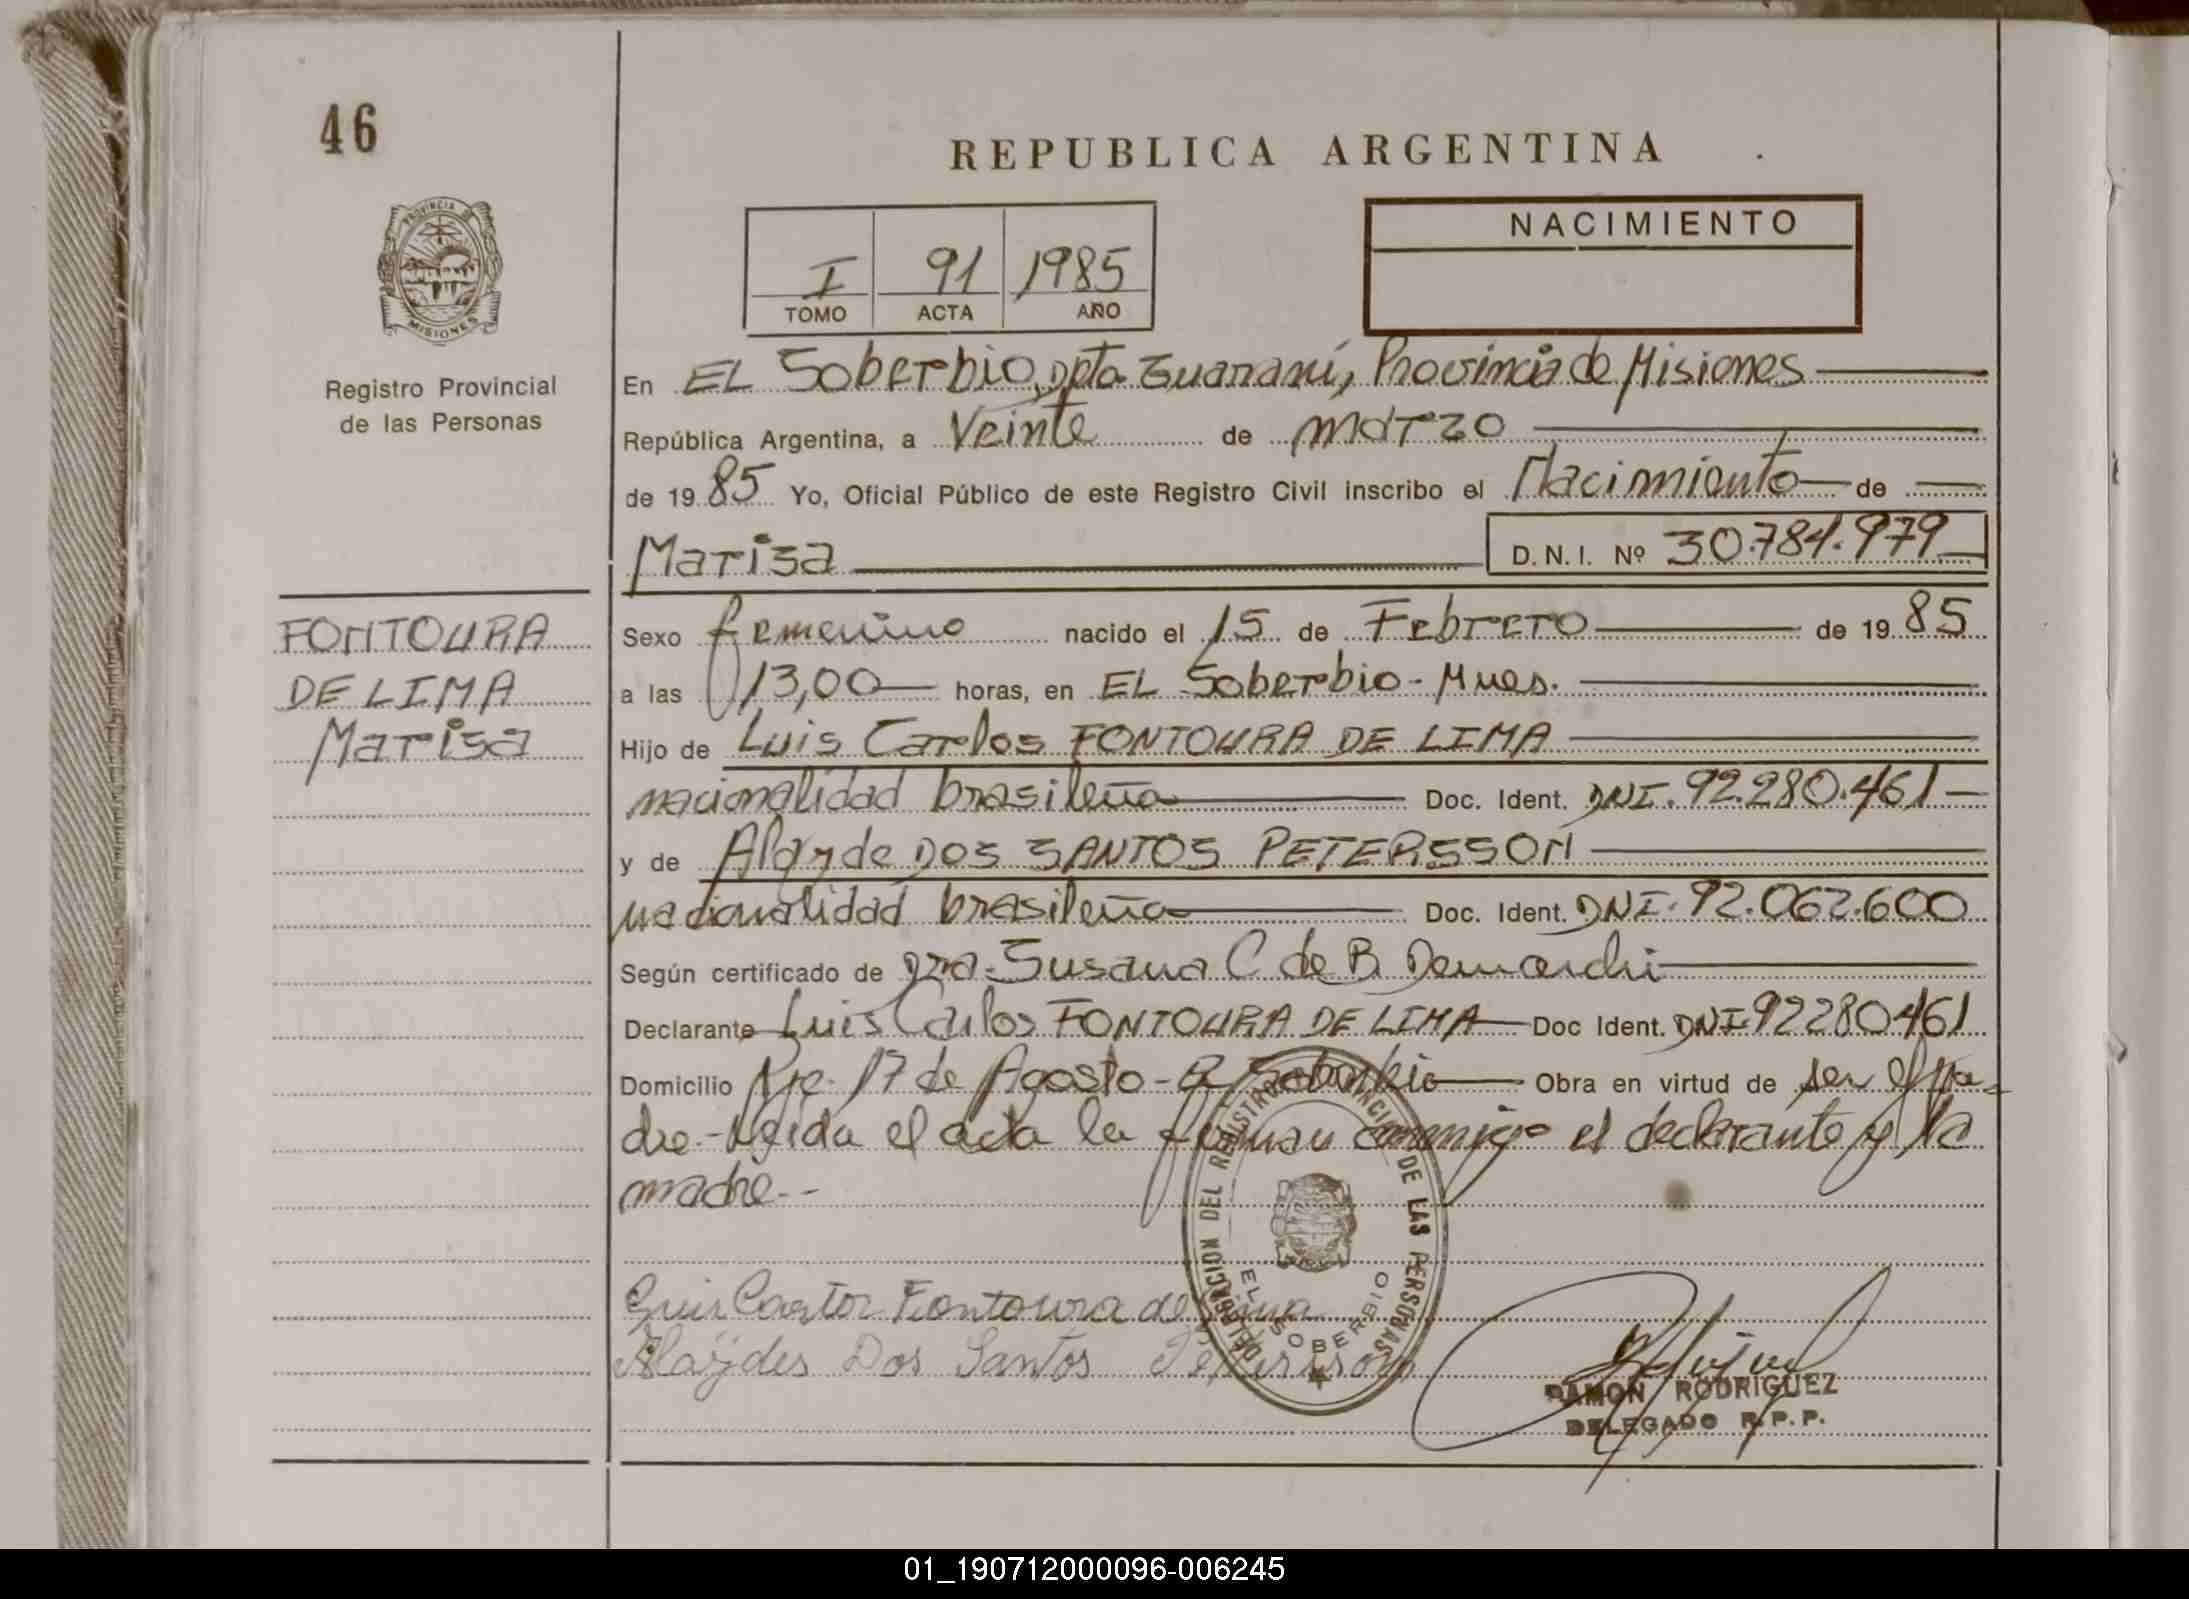 46
REPUBLICA ARGENTINA
PROVINCIA DE
MISIONES
Registro Provincial
de las Personas
I 91 1985
TOMO ACTA AÑO
NACIMIENTO
En EL Soberbio, Dpto Guaraní, Provincia de Misiones
República Argentina, a Veinte de marzo
de 1985 Yo, Oficial Público de este Registro Civil inscribo el Nacimiento de
Marisa D.N.I. Nº 30.784.979
FONTOURA
DE LIMA
Marisa
Sexo femenino nacido el 15 de Febrero de 1985
a las 13,00 horas, en EL Soberbio - Mnes.
Hijo de Luis Carlos FONTOURA DE LIMA
nacionalidad brasileña Doc. Ident. DNI. 92.280.461
y de Alayde DOS SANTOS PETERSSON
nacionalidad brasileña Doc. Ident. DNI. 92.062.600
Según certificado de Dra. Susana C de B. Demarchi
Declarante Luis Carlos FONTOURA DE LIMA Doc Ident. DNI 92280461
Domicilio Pje. 17 de Agosto - El Soberbio Obra en virtud de ser el pa-
dre. - Leida el acta la firman conmigo el declarante y la
madre. -
DELEGACION DEL REGISTRO PROVINCIAL DE LAS PERSONAS
EL SOBERBIO
Luis Carlos Fontoura de Lima
Alaydes Dos Santos Petersson
RAMON RODRIGUEZ
DELEGADO R.P.P.
01_190712000096-006245